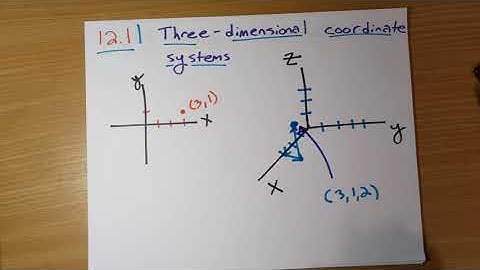 12.1 Three-dimensional coordinate
systems
y
(3,1)
x
z
y
x
(3,1,2)